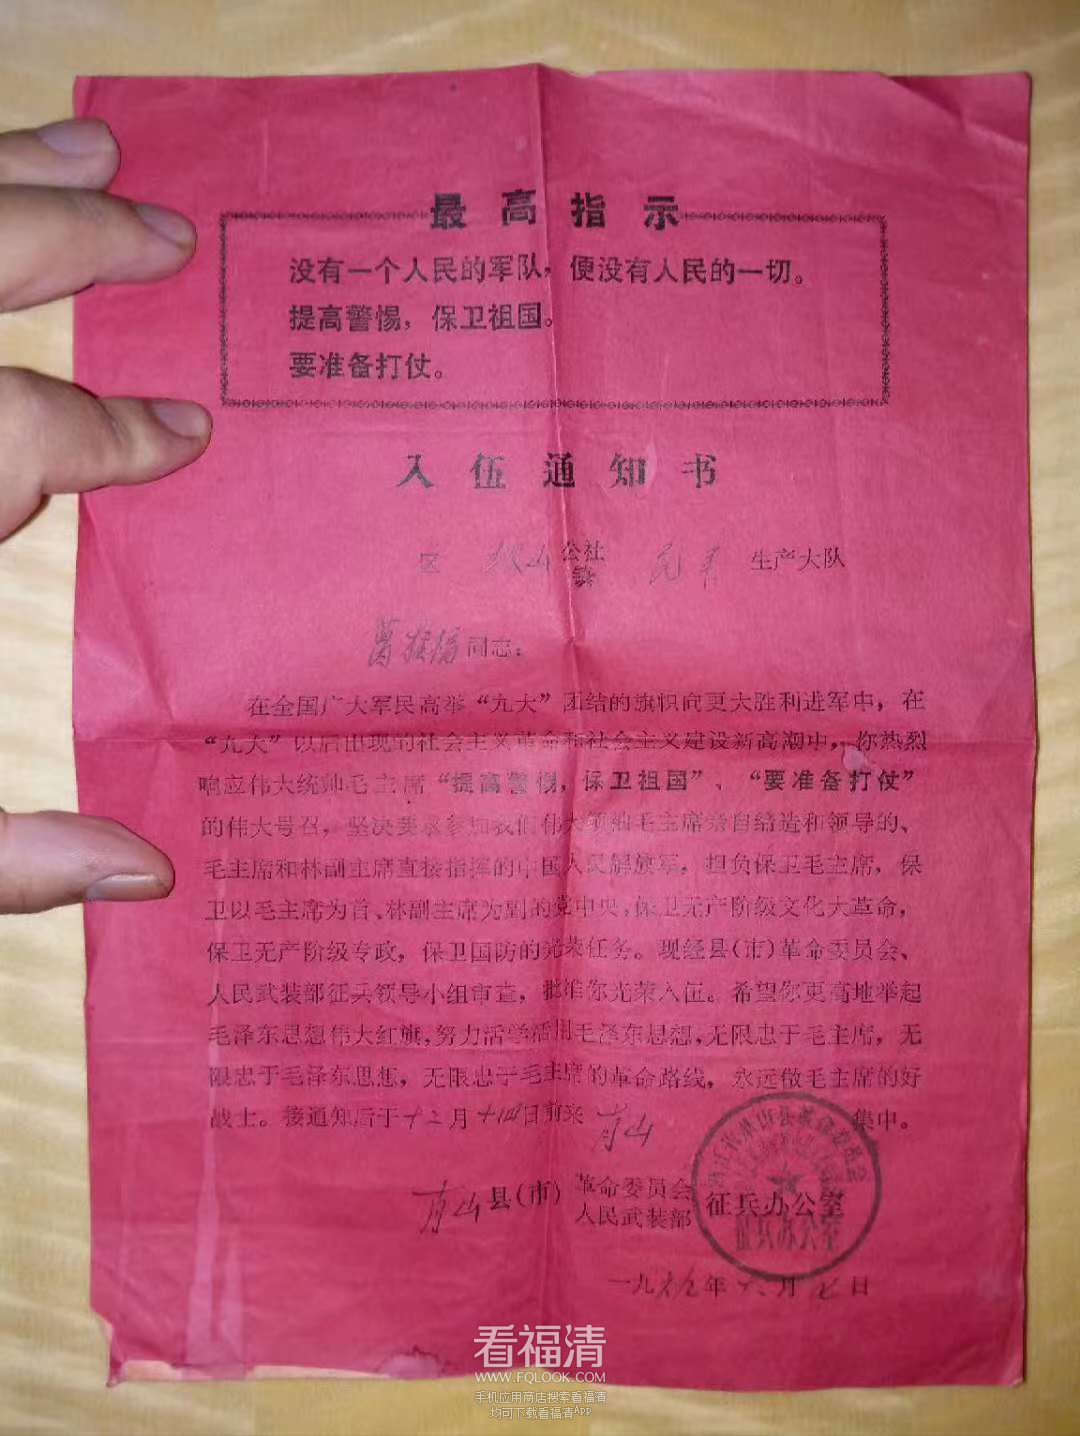 最高指示
没有一个人民的军队，便没有人民的一切。
提高警惕，保卫祖国。
要准备打仗。
入伍通知书
区 公社 生产大队
镇
同志：
在全国广大军民高举“九大”团结的旗帜向更大胜利进军中，在
“九大”以后出现的社会主义革命和社会主义建设新高潮中，你热烈
响应伟大统帅毛主席“提高警惕，保卫祖国”、“要准备打仗”
的伟大号召，坚决要求参加我们伟大领袖毛主席亲自缔造和领导的、
毛主席和林副主席直接指挥的中国人民解放军，担负保卫毛主席，保
卫以毛主席为首、林副主席为副的党中央，保卫无产阶级文化大革命，
保卫无产阶级专政，保卫国防的光荣任务。现经县(市)革命委员会、
人民武装部征兵领导小组审查，批准你光荣入伍。希望你更高地举起
毛泽东思想伟大红旗，努力活学活用毛泽东思想，无限忠于毛主席，无
限忠于毛泽东思想，无限忠于毛主席的革命路线，永远做毛主席的好
战士。接通知后于十二月十四日前来 集中。
县(市) 革命委员会 征兵办公室
人民武装部
征兵办公室
一九六九年 月 日
看福清
WWW.FQLOOK.COM
手机应用商店搜索看福清
均可下载看福清App